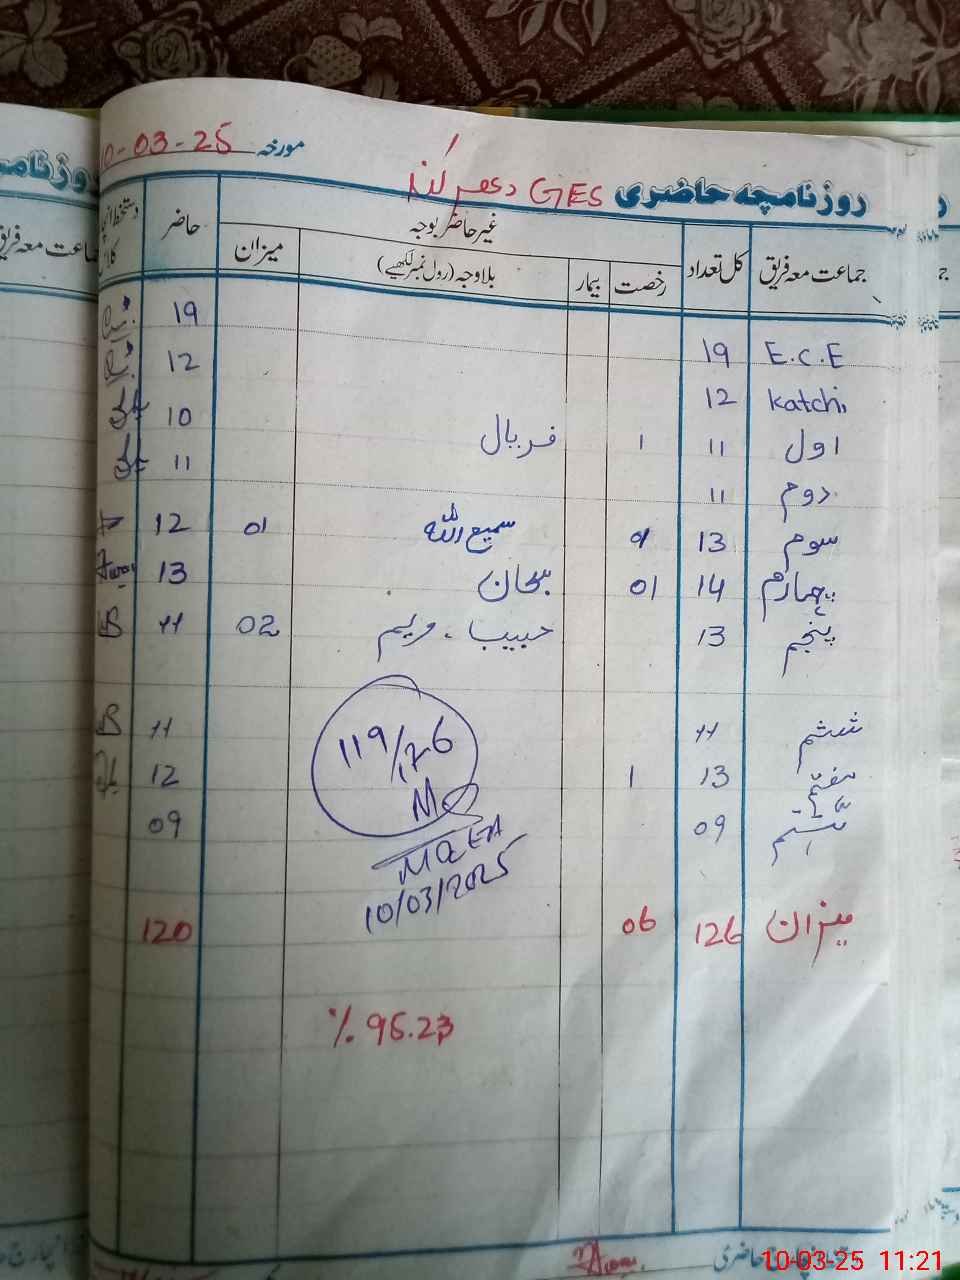 10-03-25 مورخہ
روزنامچہ حاضری GES
جماعت معہ فریق کل تعداد غیر حاضر بوجہ حاضر دستخط
رخصت بیمار بلاوجہ (رول نمبر لکھیے) میزان
E.C.E 19 19
Katchi 12 12
اول 11 1 فریال 10
دوم 11 11
سوم 13 01 سمیع اللہ 01 12
چہارم 14 01 سبحان 13
پنجم 13 حبیب ، مریم 02 11
ششم 11 11
ہفتم 13 1 12
ہشتم 09 09
119/126
MEA
10/03/2025
میزان 126 06 120
% 95.23
انچارج حاضری
10-03-25 11:21